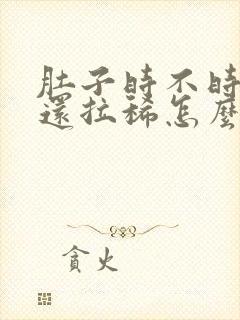 肚子時不時
還拉稀怎麼
貪火